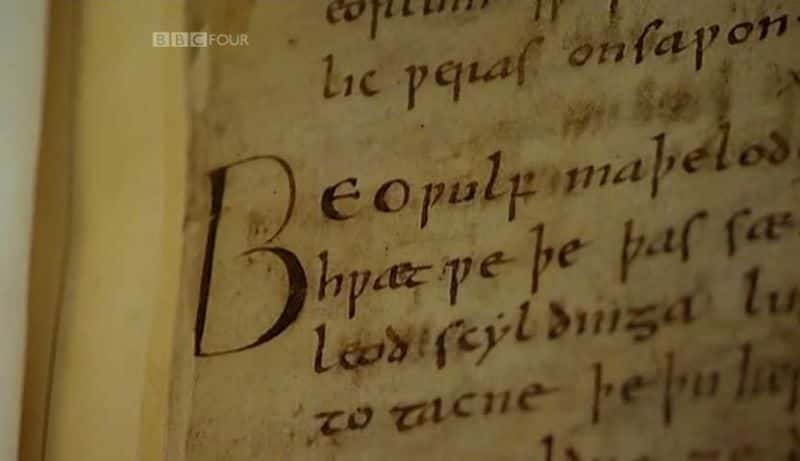 BBC FOUR
eorlum
lic ƿeras onsaƿon
BEOƿulf maþelod
hƿæt ƿe þe þas sæ
leod scyldinga lu
to tacne þe þu her